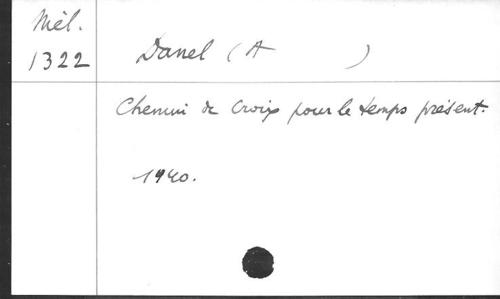 Mél.
1322
Danel (A )
Chemin de Croix pour le temps présent.
1940.